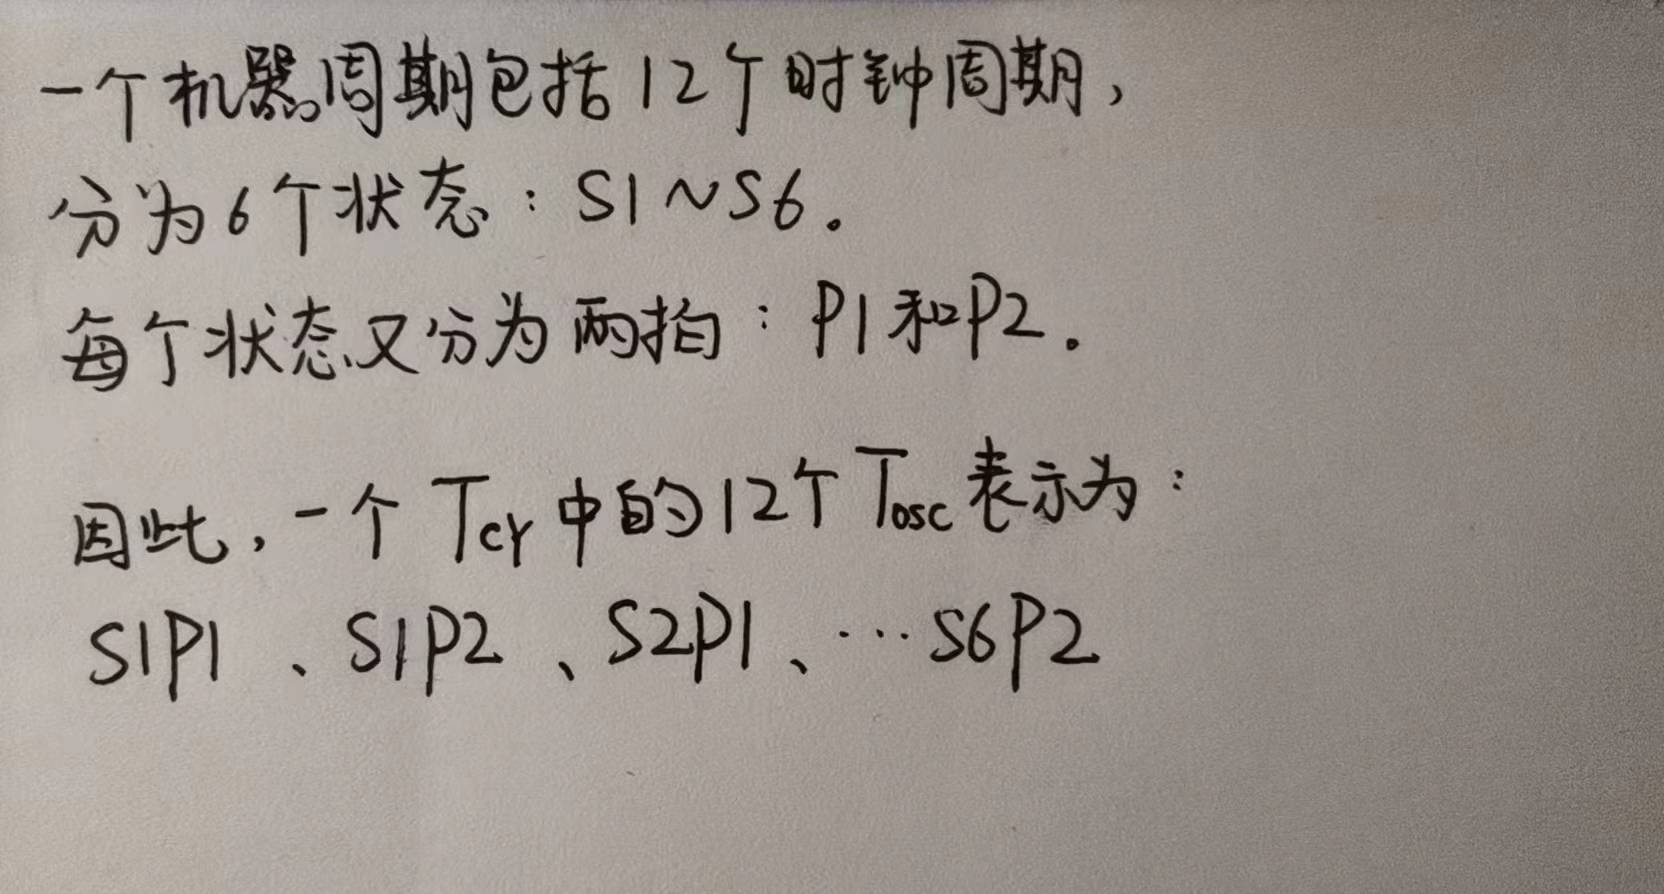 一个机器周期包括12个时钟周期，
分为6个状态：S1~S6。
每个状态又分为两拍：P1和P2.
因此，一个Tcy中的12个Tosc表示为：
S1P1、S1P2、S2P1、…S6P2